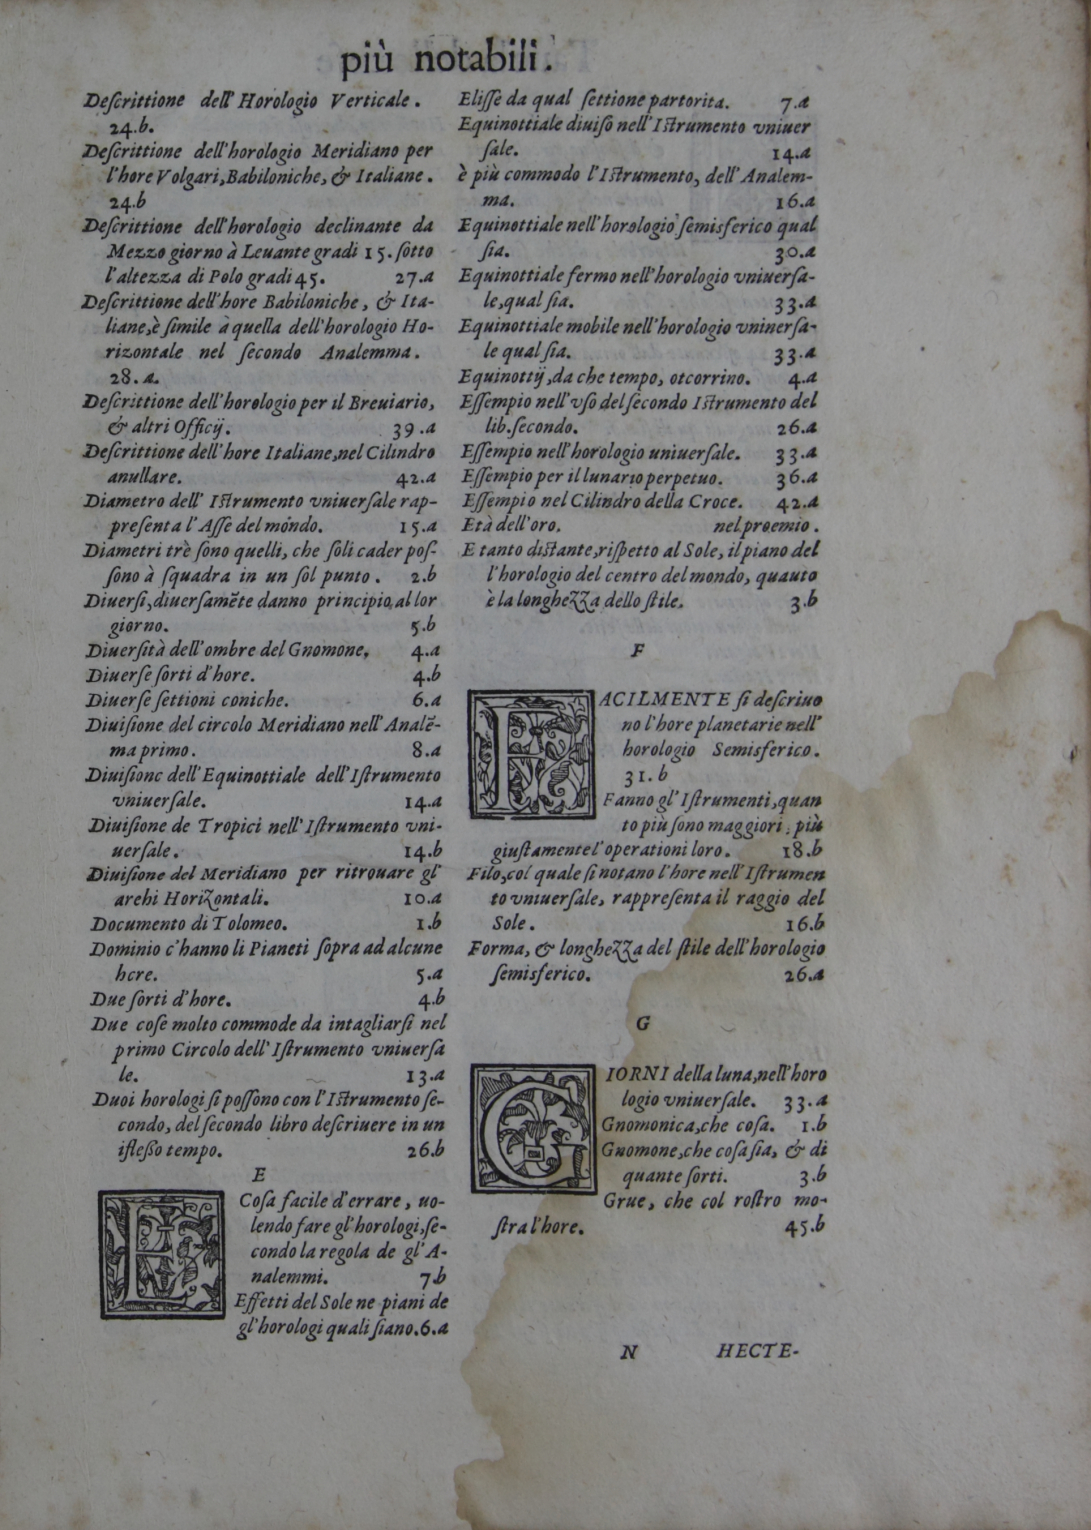 più notabili.
Deſcrittione dell' Horologio Verticale.
24.b.
Deſcrittione dell'horologio Meridiano per
l'hore Volgari, Babiloniche, & Italiane.
24.b
Deſcrittione dell'horologio declinante da
Mezzo giorno à Leuante gradi 15. ſotto
l'altezza di Polo gradi 45. 27.a
Deſcrittione dell'hore Babiloniche, & Ita-
liane,è ſimile à quella dell'horologio Ho-
rizontale nel ſecondo Analemma.
28.a.
Deſcrittione dell'horologio per il Breuiario,
& altri Officij. 39.a
Deſcrittione dell'hore Italiane,nel Cilindro
anullare. 42.a
Diametro dell' Iſtrumento vniuerſale rap-
preſenta l'Aſſe del mondo. 15.a
Diametri trè ſono quelli, che ſoli cader poſ-
ſono à ſquadra in un ſol punto. 2.b
Diuerſi,diuerſamēte danno principio,al lor
giorno. 5.b
Diuerſità dell'ombre del Gnomone, 4.a
Diuerſe ſorti d'hore. 4.b
Diuerſe ſettioni coniche. 6.a
Diuiſione del circolo Meridiano nell'Analē-
ma primo. 8.a
Diuiſione dell'Equinottiale dell'Iſtrumento
vniuerſale. 14.a
Diuiſione de Tropici nell'Iſtrumento vni-
uerſale. 14.b
Diuiſione del Meridiano per ritrouare gl'
archi Horizontali. 10.a
Documento di Tolomeo. 1.b
Dominio c'hanno li Pianeti ſopra ad alcune
hcre. 5.a
Due ſorti d'hore. 4.b
Due coſe molto commode da intagliarſi nel
primo Circolo dell'Iſtrumento vniuerſa
le. 13.a
Duoi horologi ſi poſſono con l'Iſtrumento ſe-
condo, del ſecondo libro deſcriuere in un
iſteſſo tempo. 26.b
E
E Coſa facile d'errare, uo-
lendo fare gl'horologi,ſe-
condo la regola de gl'A-
nalemmi. 7.b
Effetti del Sole ne piani de
gl'horologi quali ſiano.6.a
Eliſſe da qual ſettione partorita. 7.a
Equinottiale diuiſo nell'Iſtrumento vniuer
ſale. 14.a
è più commodo l'Iſtrumento, dell'Analem-
ma. 16.a
Equinottiale nell'horologio ſemisferico qual
ſia. 30.a
Equinottiale fermo nell'horologio vniuerſa-
le,qual ſia. 33.a
Equinottiale mobile nell'horologio vninerſa-
le qual ſia. 33.a
Equinottij,da che tempo, otcorrino. 4.a
Eſſempio nell'vſo del ſecondo Iſtrumento del
lib.ſecondo. 26.a
Eſſempio nell'horologio uniuerſale. 33.a
Eſſempio per il lunario perpetuo. 36.a
Eſſempio nel Cilindro della Croce. 42.a
Età dell'oro. nel proemio.
E tanto diſtante,riſpetto al Sole, il piano del
l'horologio del centro del mondo, quauto
è la longhezza dello ſtile. 3.b
F
FACILMENTE ſi deſcriuo
no l'hore planetarie nell'
horologio Semisferico.
31.b
Fanno gl'Iſtrumenti,quan
to più ſono maggiori, più
giuſtamente l'operationi loro. 18.b
Filo,col quale ſi notano l'hore nell'Iſtrumen
to vniuerſale, rappreſenta il raggio del
Sole. 16.b
Forma, & longhezza del ſtile dell'horologio
ſemisferico. 26.a
G
GIORNI della luna,nell'horo
logio vniuerſale. 33.a
Gnomonica,che coſa. 1.b
Gnomone,che coſa ſia, & di
quante ſorti. 3.b
Grue, che col roſtro mo-
ſtra l'hore. 45.b
N HECTE-